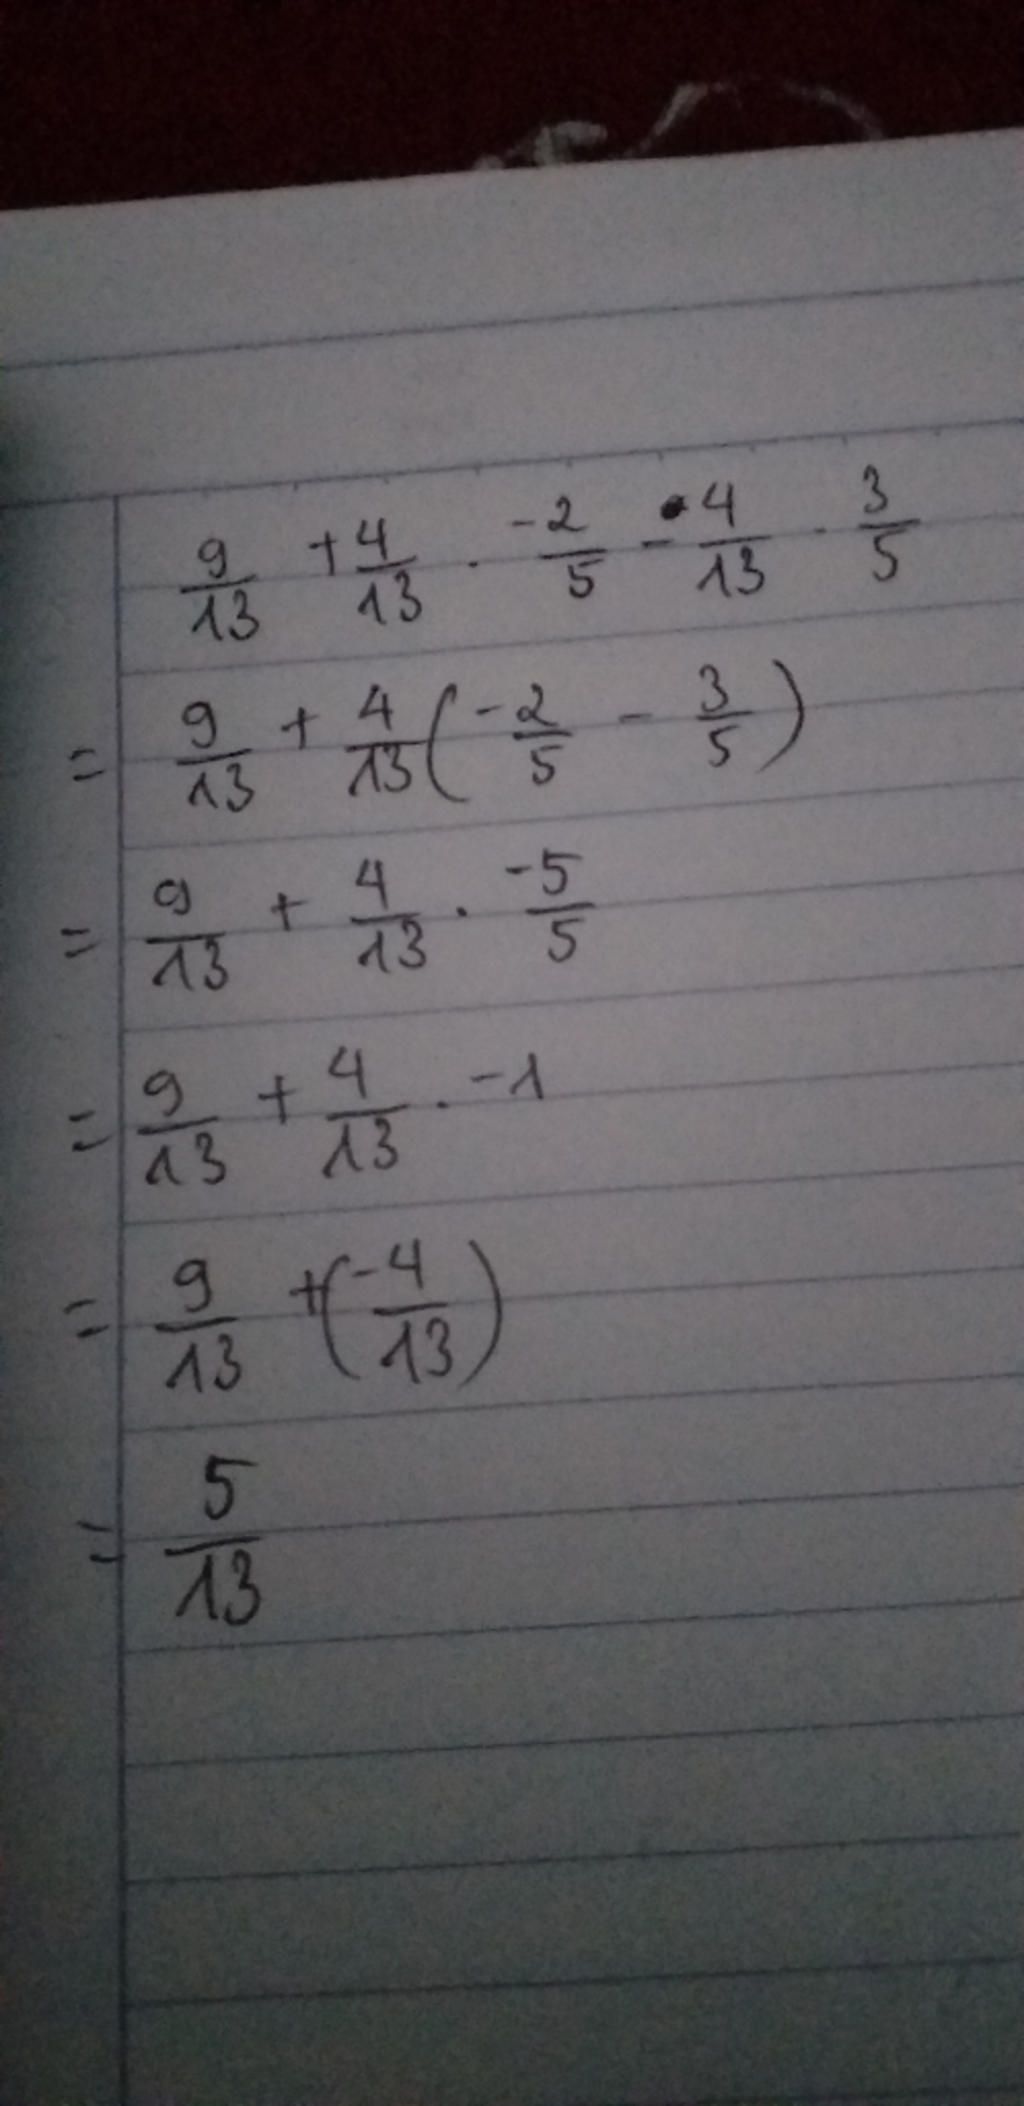 9/13 + 4/13 . -2/5 - 4/13 . 3/5
= 9/13 + 4/13 ( -2/5 - 3/5 )
= 9/13 + 4/13 . -5/5
= 9/13 + 4/13 . -1
= 9/13 + ( -4/13 )
= 5/13